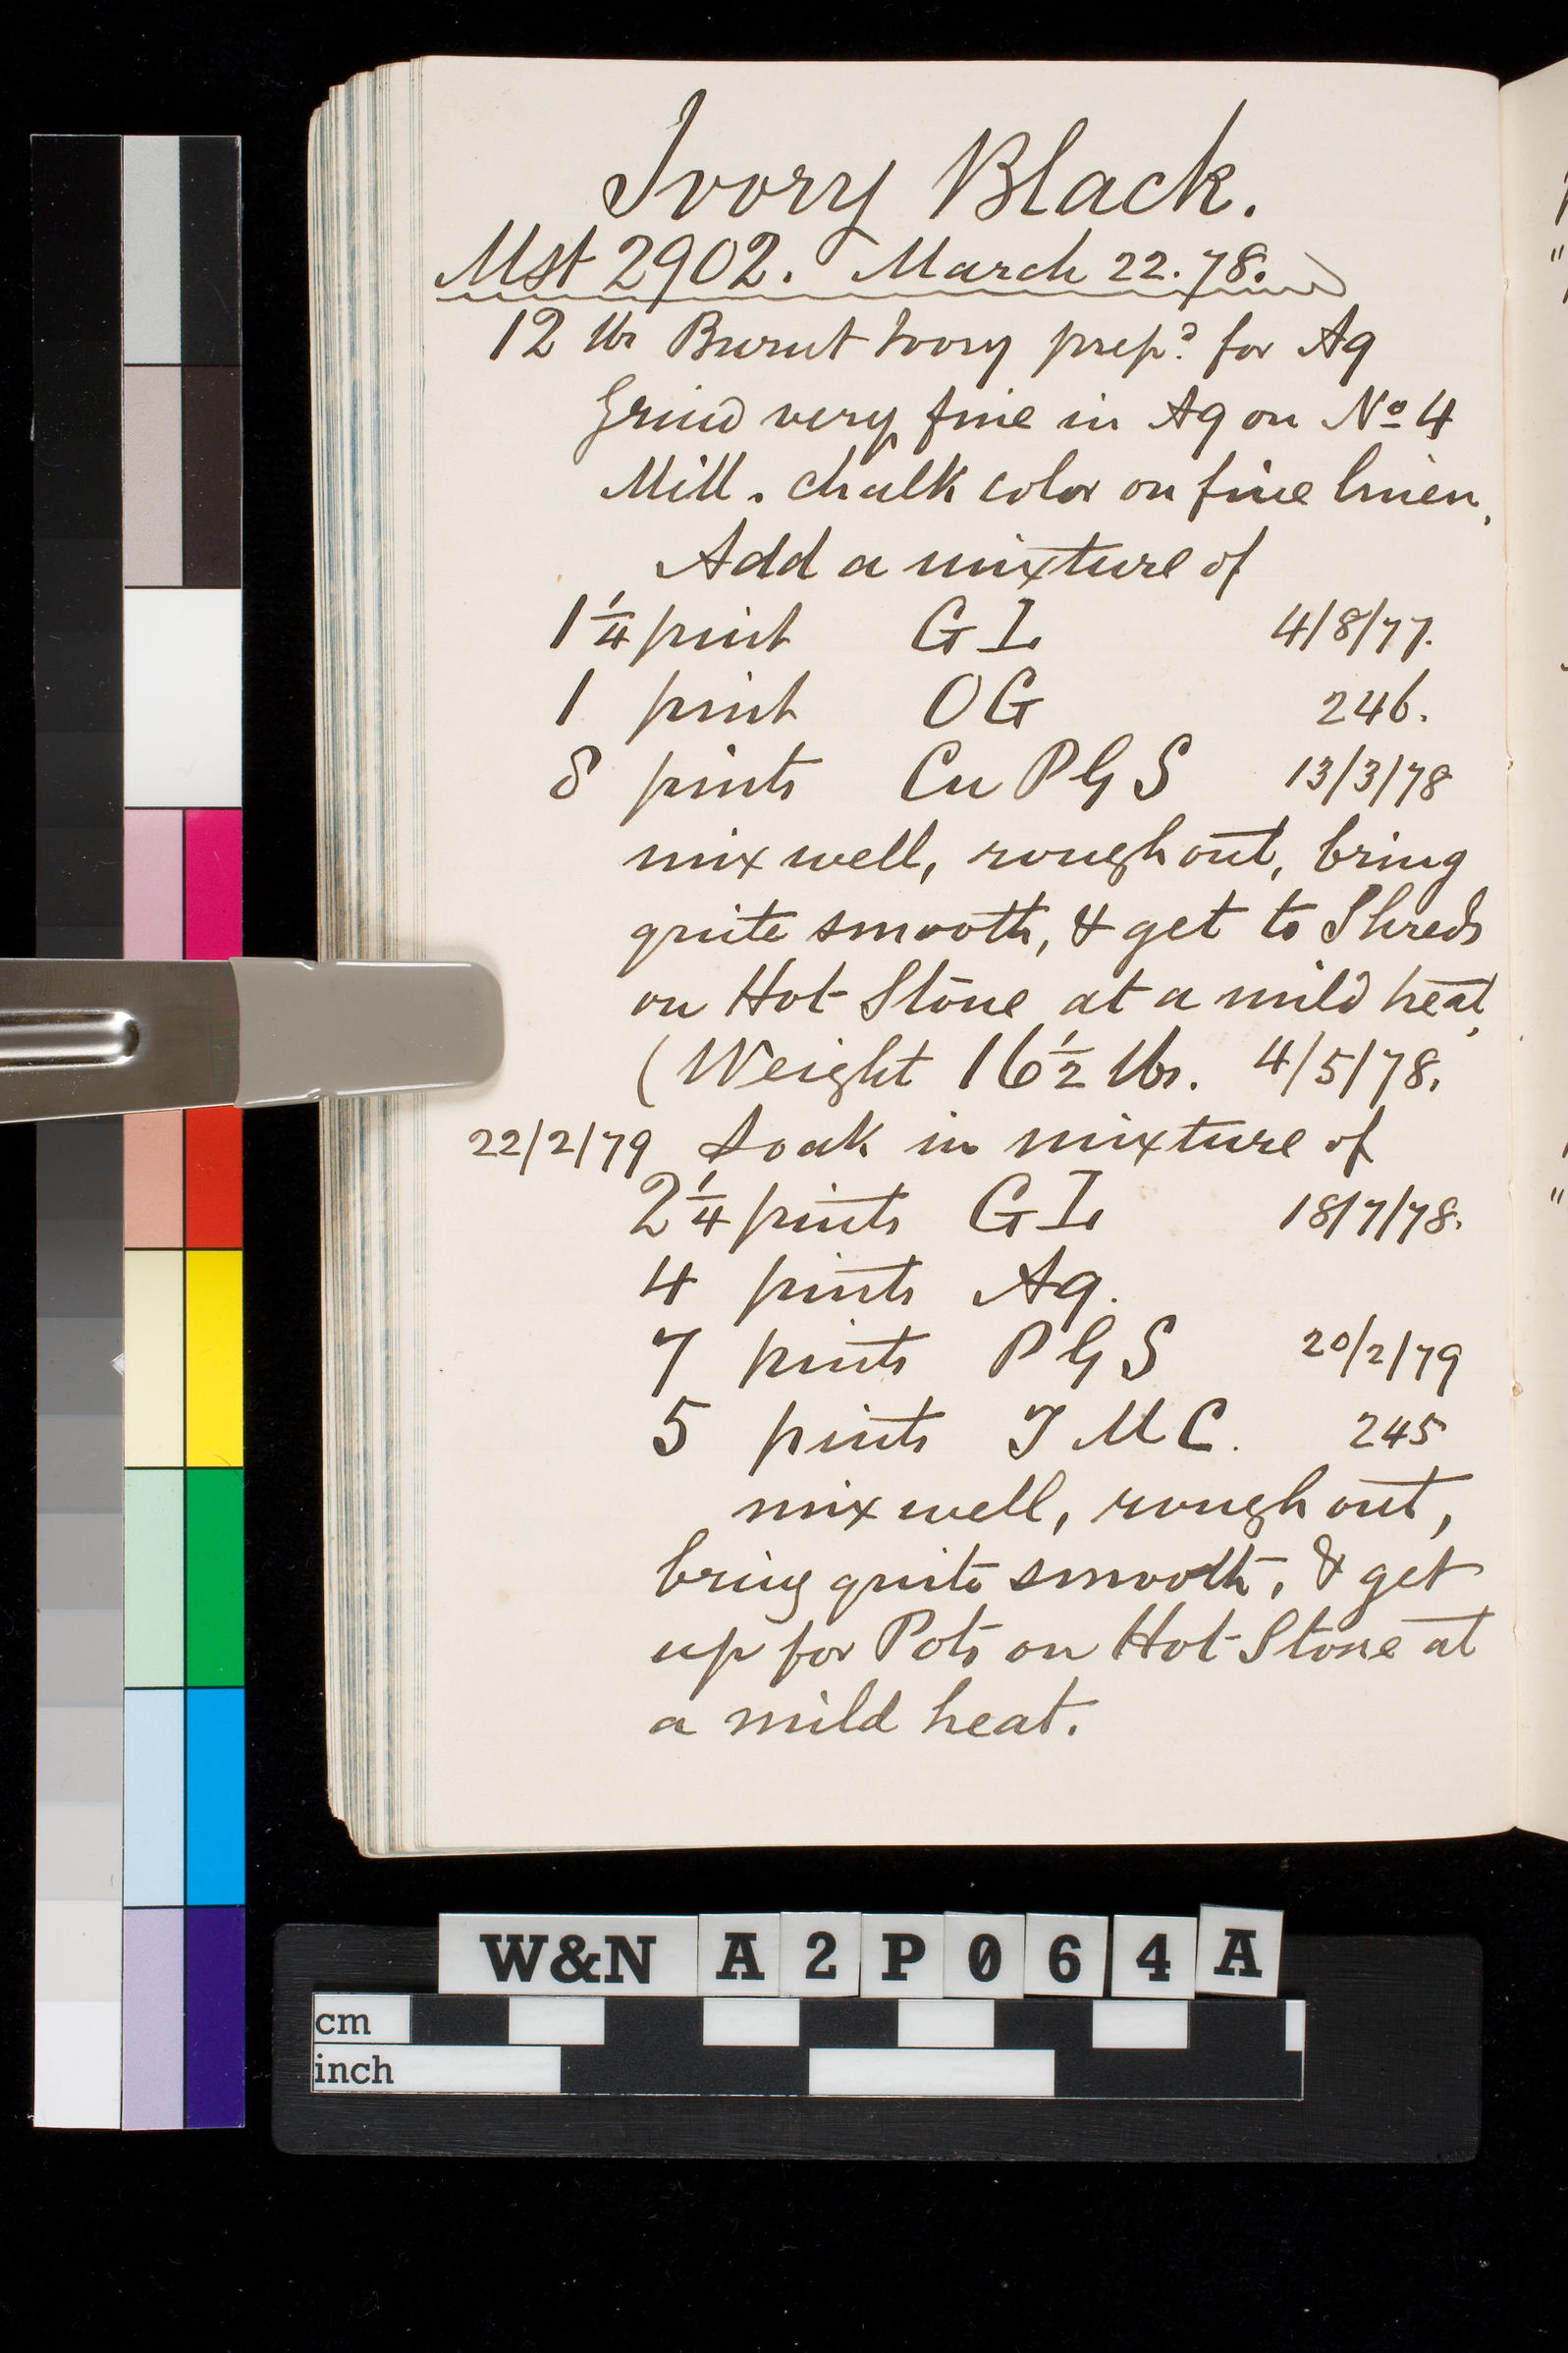 Ivory Black.
Mst 2902. March 22.78.
12 lbs Burnt Ivory prepd. for Aq
Grind very fine in Aq on No 4
Mill. chalk color on fine linen.
Add a mixture of
1 1/4 pint GL 4/8/77.
1 pint OG 246.
8 pints Cu PGS 13/3/78
mix well, rough out, bring
quite smooth, & get to Shreds
on Hot Stone at a mild heat,
(Weight 16 1/2 lbs. 4/5/78.
22/2/79 Soak in mixture of
2 1/4 pints GL 18/7/78.
4 pints Aq.
7 pints PGS 20/2/79
5 pints TMC. 245
mix well, rough out,
bring quite smooth, & get
up for Pots on Hot Stone at
a mild heat.
W&N A2P064A
cm
inch